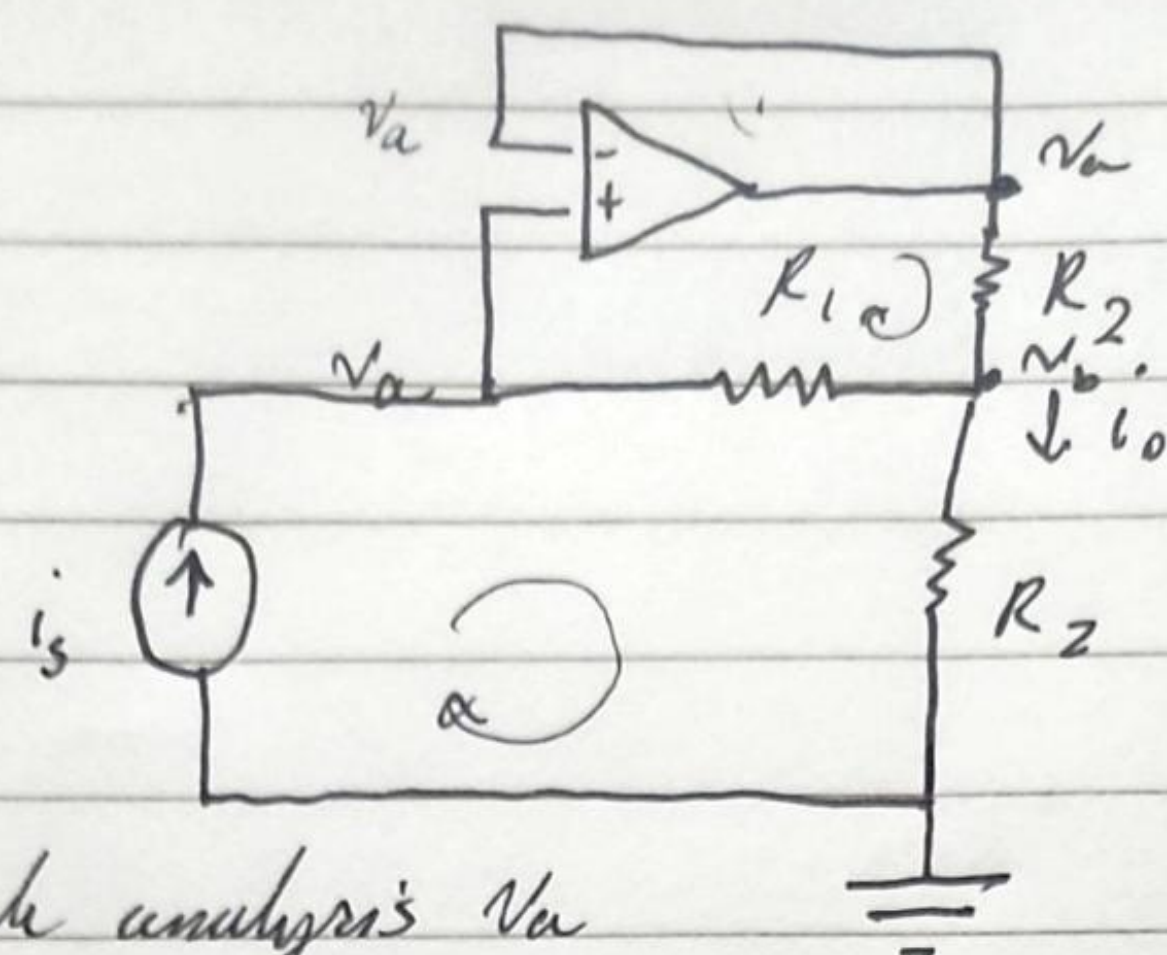 Va
-
+
Va
R1
R2
Va
Vb
io
is
R2
analysis Va